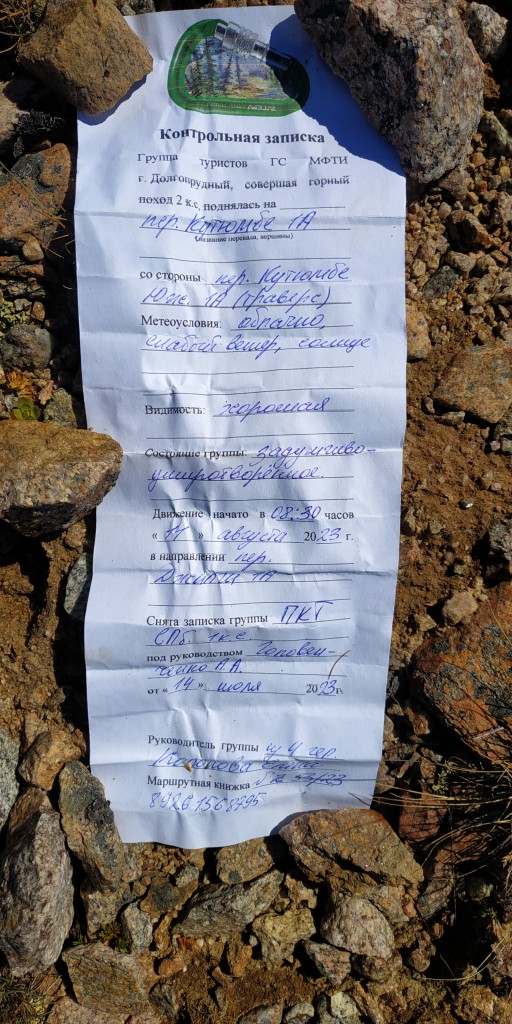 Контрольная записка
Группа туристов ГС МФТИ
г. Долгопрудный, совершая горный
поход 2 к.с, поднялась на
пер. Кутюмбе 1А
(название перевала, вершины)
со стороны пер. Кутюмбе
Юж. 1А (траверс)
Метеоусловия: облачно,
слабый ветер, солнце
Видимость: хорошая
Состояние группы: задумчиво-
умиротворённое.
Движение начато в 08:30 часов
« 11 » августа 2023 г.
в направлении пер.
1А
Снята записка группы ПКТ
СПб. 1к.с.
под руководством Головен-
А.А.
от « 14 » июля 2023г.
Руководитель группы
Маршрутная книжка
8926 1568795